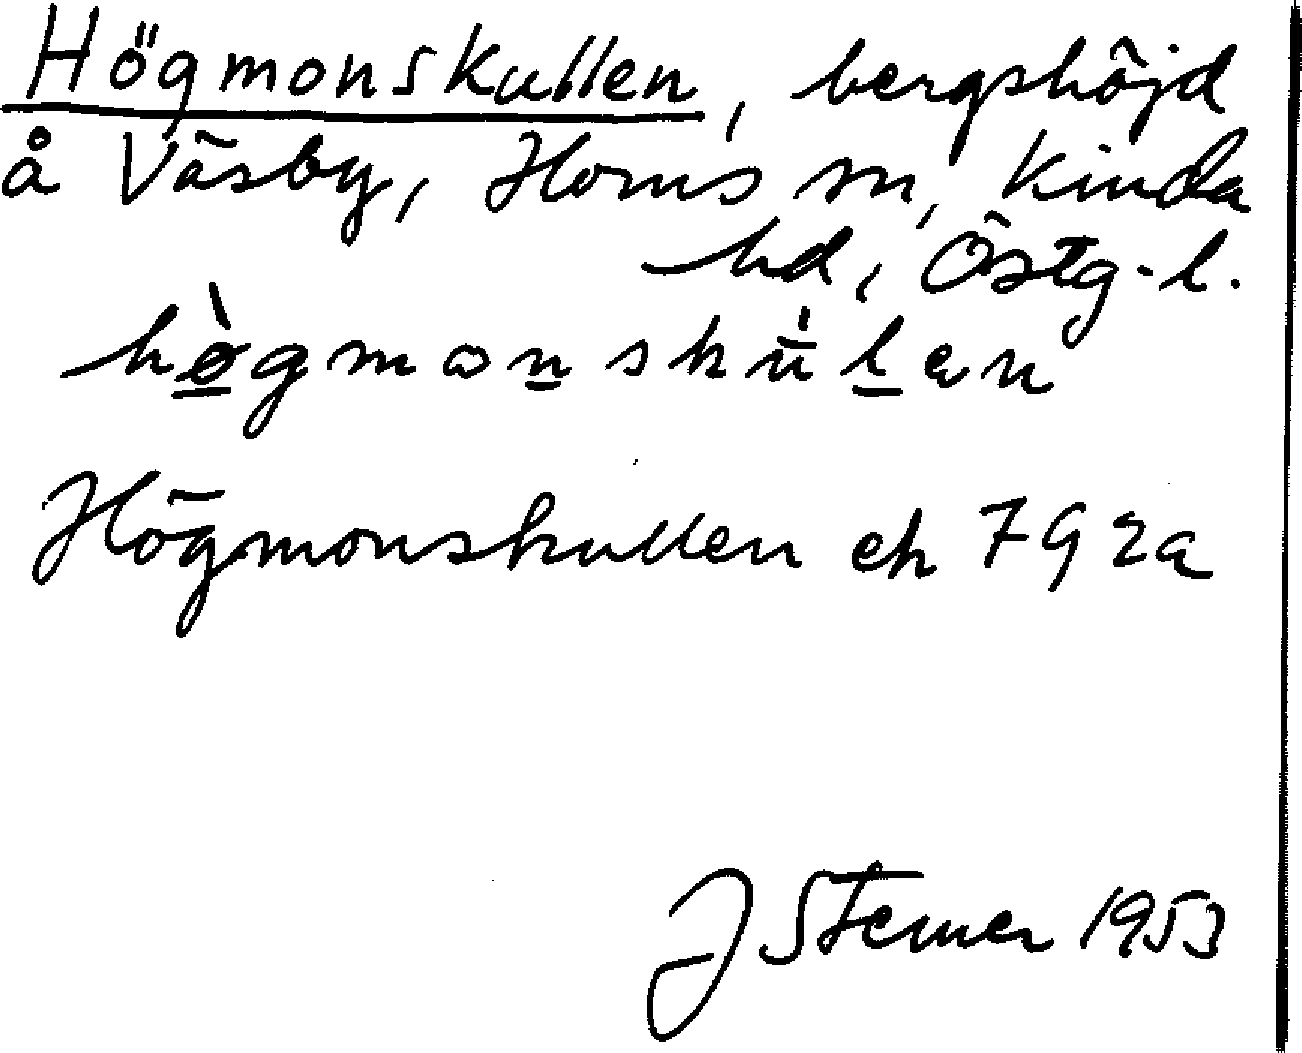 Högmonskullen, bergshöjd
å Väsby, Horns sn, Kinda
hd, Östg. l.
hø̀gmonsku̇̀len
Högmonskullen ek 79 2a
J Sterner 1953